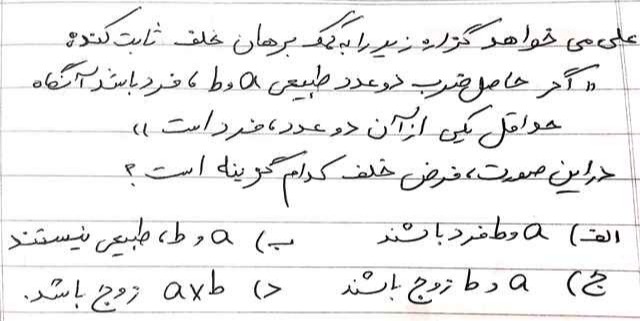 علی می خواهد گزاره زیر را به کمک برهان خلف ثابت کند:
«اگر حاصل ضرب دو عدد طبیعی a و b، فرد باشد آنگاه
حداقل یکی از آن دو عدد، فرد است»
در این صورت، فرض خلف کدام گزینه است؟
الف) a و b فرد باشند ب) a و b، طبیعی نیستند
ج) a و b زوج باشند د) a×b زوج باشد.